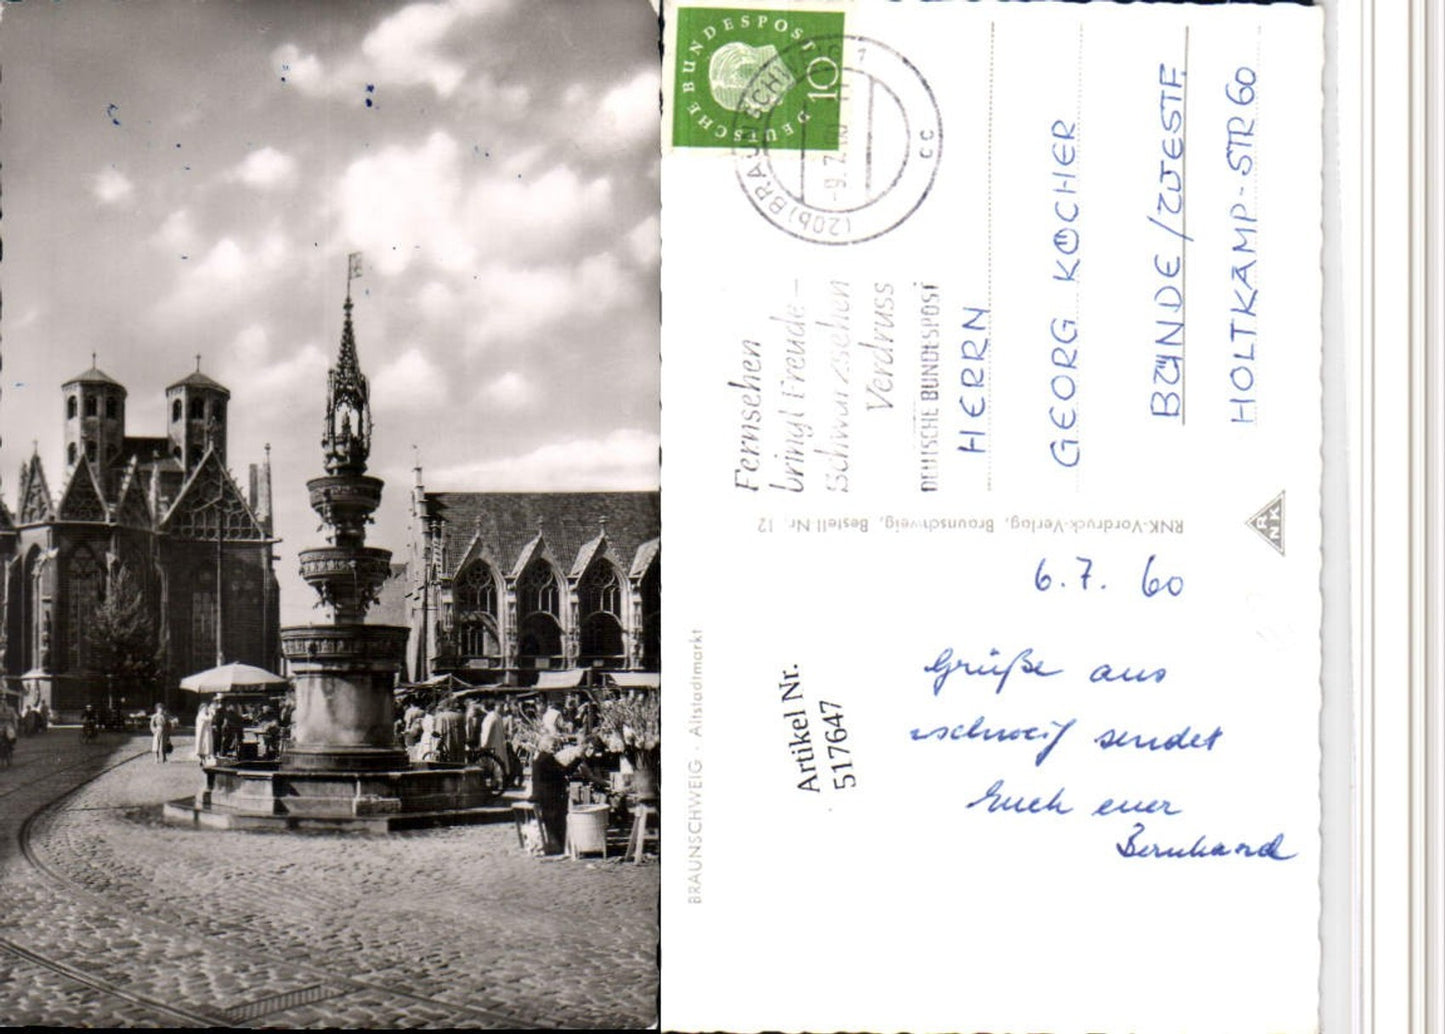 DEUTSCHE BUNDESPOST
10
(20b) BRAUNSCHWEIG 1
-9.7.60
cc
Fernsehen
bringt Freude –
Schwarzsehen
Verdruss
DEUTSCHE BUNDESPOST
HERRN
GEORG KÖCHER
BÜNDE/WESTF.
HOLTKAMP-STR 60
RNK-Vordruck-Verlag, Braunschweig, Bestell-Nr. 12
RNK
BRAUNSCHWEIG · Altstadtmarkt
Artikel Nr.
517647
6.7. 60
Grüße aus
schweig sendet
Euch euer
Bernhard